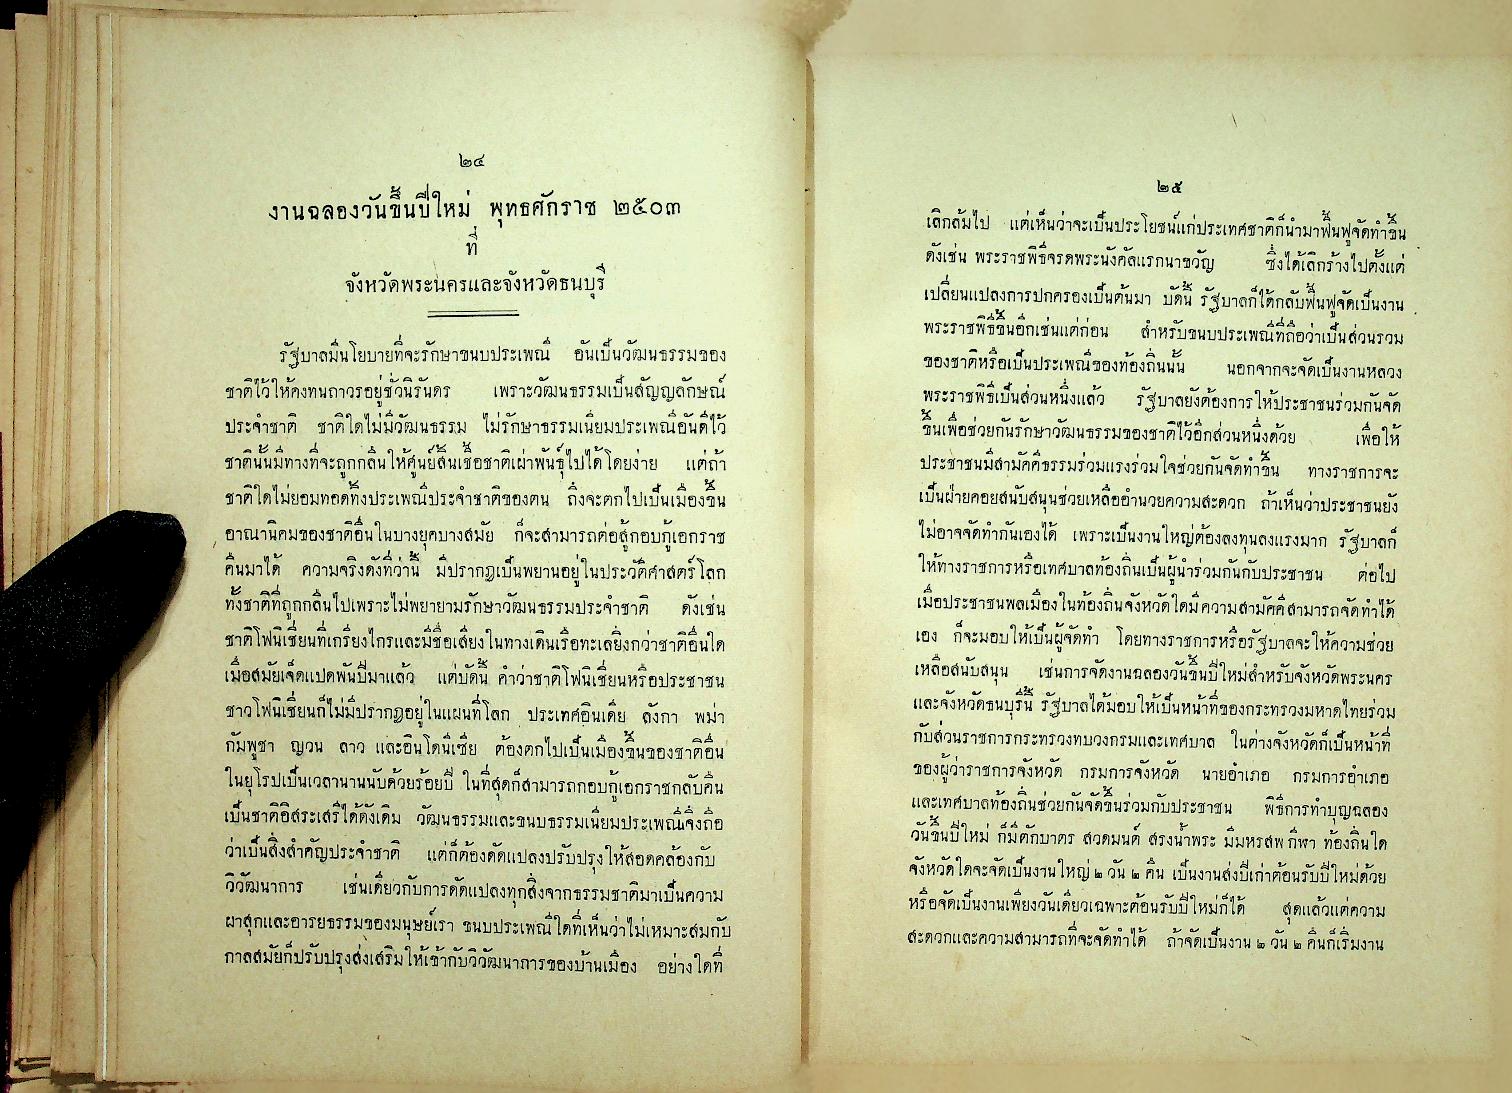 ๒๔
งานฉลองวันขึ้นปีใหม่ พุทธศักราช ๒๕๐๓
ที่
จังหวัดพระนครและจังหวัดธนบุรี
รัฐบาลมีนโยบายที่จะรักษาขนบประเพณี อันเป็นวัฒนธรรมของ
ชาติไว้ให้คงทนถาวรอยู่ชั่วนิรันดร เพราะวัฒนธรรมเป็นสัญญลักษณ์
ประจำชาติ ชาติใดไม่มีวัฒนธรรม ไม่รักษาธรรมเนียมประเพณีอันดีไว้
ชาตินั้นมีทางที่จะถูกกลืนให้ศูนย์สิ้นเชื้อชาติเผ่าพันธุ์ไปได้โดยง่าย แต่ถ้า
ชาติใดไม่ยอมทอดทิ้งประเพณีประจำชาติของตน ถึงจะตกไปเป็นเมืองขึ้น
อาณานิคมของชาติอื่นในบางยุคบางสมัย ก็จะสามารถต่อสู้กอบกู้เอกราช
คืนมาได้ ความจริงดังที่ว่านี้ มีปรากฏเป็นพยานอยู่ในประวัติศาสตร์โลก
ทั้งชาติที่ถูกกลืนไปเพราะไม่พยายามรักษาวัฒนธรรมประจำชาติ ดังเช่น
ชาติโฟนิเชี่ยนที่เกรี่ยงไกรและมีชื่อเสียงในทางเดินเรือทะเลยิ่งกว่าชาติอื่นใด
เมื่อสมัยเจ็ดแปดพันปีมาแล้ว แต่บัดนี้ คำว่าชาติโฟนิเชี่ยนหรือประชาชน
ชาวโฟนิเชี่ยนก็ไม่มีปรากฏอยู่ในแผนที่โลก ประเทศอินเดีย ลังกา พม่า
กัมพูชา ญวน ลาว และอินโดนีเซีย ต้องตกไปเป็นเมืองขึ้นของชาติอื่น
ในยุโรปเป็นเวลานานนับด้วยร้อยปี ในที่สุดก็สามารถกอบกู้เอกราชกลับคืน
เป็นชาติอิสระเสรีได้ดังเดิม วัฒนธรรมและขนบธรรมเนียมประเพณีจึ่งถือ
ว่าเป็นสิ่งสำคัญประจำชาติ แต่ก็ต้องดัดแปลงปรับปรุงให้สอดคล้องกับ
วิวัฒนาการ เช่นเดียวกับการดัดแปลงทุกสิ่งจากธรรมชาติมาเป็นความ
ผาสุกและอารยธรรมของมนุษย์เรา ขนบประเพณีใดที่เห็นว่าไม่เหมาะสมกับ
กาลสมัยก็ปรับปรุงส่งเสริมให้เข้ากับวิวัฒนาการของบ้านเมือง อย่างใดที่
๒๕
เลิกล้มไป แต่เห็นว่าจะเป็นประโยชน์แก่ประเทศชาติก็นำมาฟื้นฟูจัดทำขึ้น
ดังเช่น พระราชพิธีจรดพระนังคัลแรกนาขวัญ ซึ่งได้เลิกร้างไปตั้งแต่
เปลี่ยนแปลงการปกครองเป็นต้นมา บัดนี้ รัฐบาลก็ได้กลับฟื้นฟูจัดเป็นงาน
พระราชพิธีขึ้นอีกเช่นแต่ก่อน สำหรับขนบประเพณีที่ถือว่าเป็นส่วนรวม
ของชาติหรือเป็นประเพณีของท้องถิ่นนั้น นอกจากจะจัดเป็นงานหลวง
พระราชพิธีเป็นส่วนหนึ่งแล้ว รัฐบาลยังต้องการให้ประชาชนร่วมกันจัด
ขึ้นเพื่อช่วยกันรักษาวัฒนธรรมของชาติไว้อีกส่วนหนึ่งด้วย เพื่อให้
ประชาชนมีสามัคคีธรรมร่วมแรงร่วมใจช่วยกันจัดทำขึ้น ทางราชการจะ
เป็นฝ่ายคอยสนับสนุนช่วยเหลืออำนวยความสะดวก ถ้าเห็นว่าประชาชนยัง
ไม่อาจจัดทำกันเองได้ เพราะเป็นงานใหญ่ต้องลงทุนลงแรงมาก รัฐบาลก็
ให้ทางราชการหรือเทศบาลท้องถิ่นเป็นผู้นำร่วมกันกับประชาชน ต่อไป
เมื่อประชาชนพลเมืองในท้องถิ่นจังหวัดใดมีความสามัคคีสามารถจัดทำได้
เอง ก็จะมอบให้เป็นผู้จัดทำ โดยทางราชการหรือรัฐบาลจะให้ความช่วย
เหลือสนับสนุน เช่นการจัดงานฉลองวันขึ้นปีใหม่สำหรับจังหวัดพระนคร
และจังหวัดธนบุรีนี้ รัฐบาลได้มอบให้เป็นหน้าที่ของกระทรวงมหาดไทยร่วม
กับส่วนราชการกระทรวงทบวงกรมและเทศบาล ในต่างจังหวัดก็เป็นหน้าที่
ของผู้ว่าราชการจังหวัด กรมการจังหวัด นายอำเภอ กรมการอำเภอ
และเทศบาลท้องถิ่นช่วยกันจัดขึ้นร่วมกับประชาชน พิธีการทำบุญฉลอง
วันขึ้นปีใหม่ ก็มีตักบาตร สวดมนต์ สรงน้ำพระ มีมหรสพ กีฬา ท้องถิ่นใด
จังหวัดใดจะจัดเป็นงานใหญ่ ๒ วัน ๒ คืน เป็นงานส่งปีเก่าต้อนรับปีใหม่ด้วย
หรือจัดเป็นงานเพียงวันเดียวเฉพาะต้อนรับปีใหม่ก็ได้ สุดแล้วแต่ความ
สะดวกและความสามารถที่จะจัดทำได้ ถ้าจัดเป็นงาน ๒ วัน ๒ คืนก็เริ่มงาน